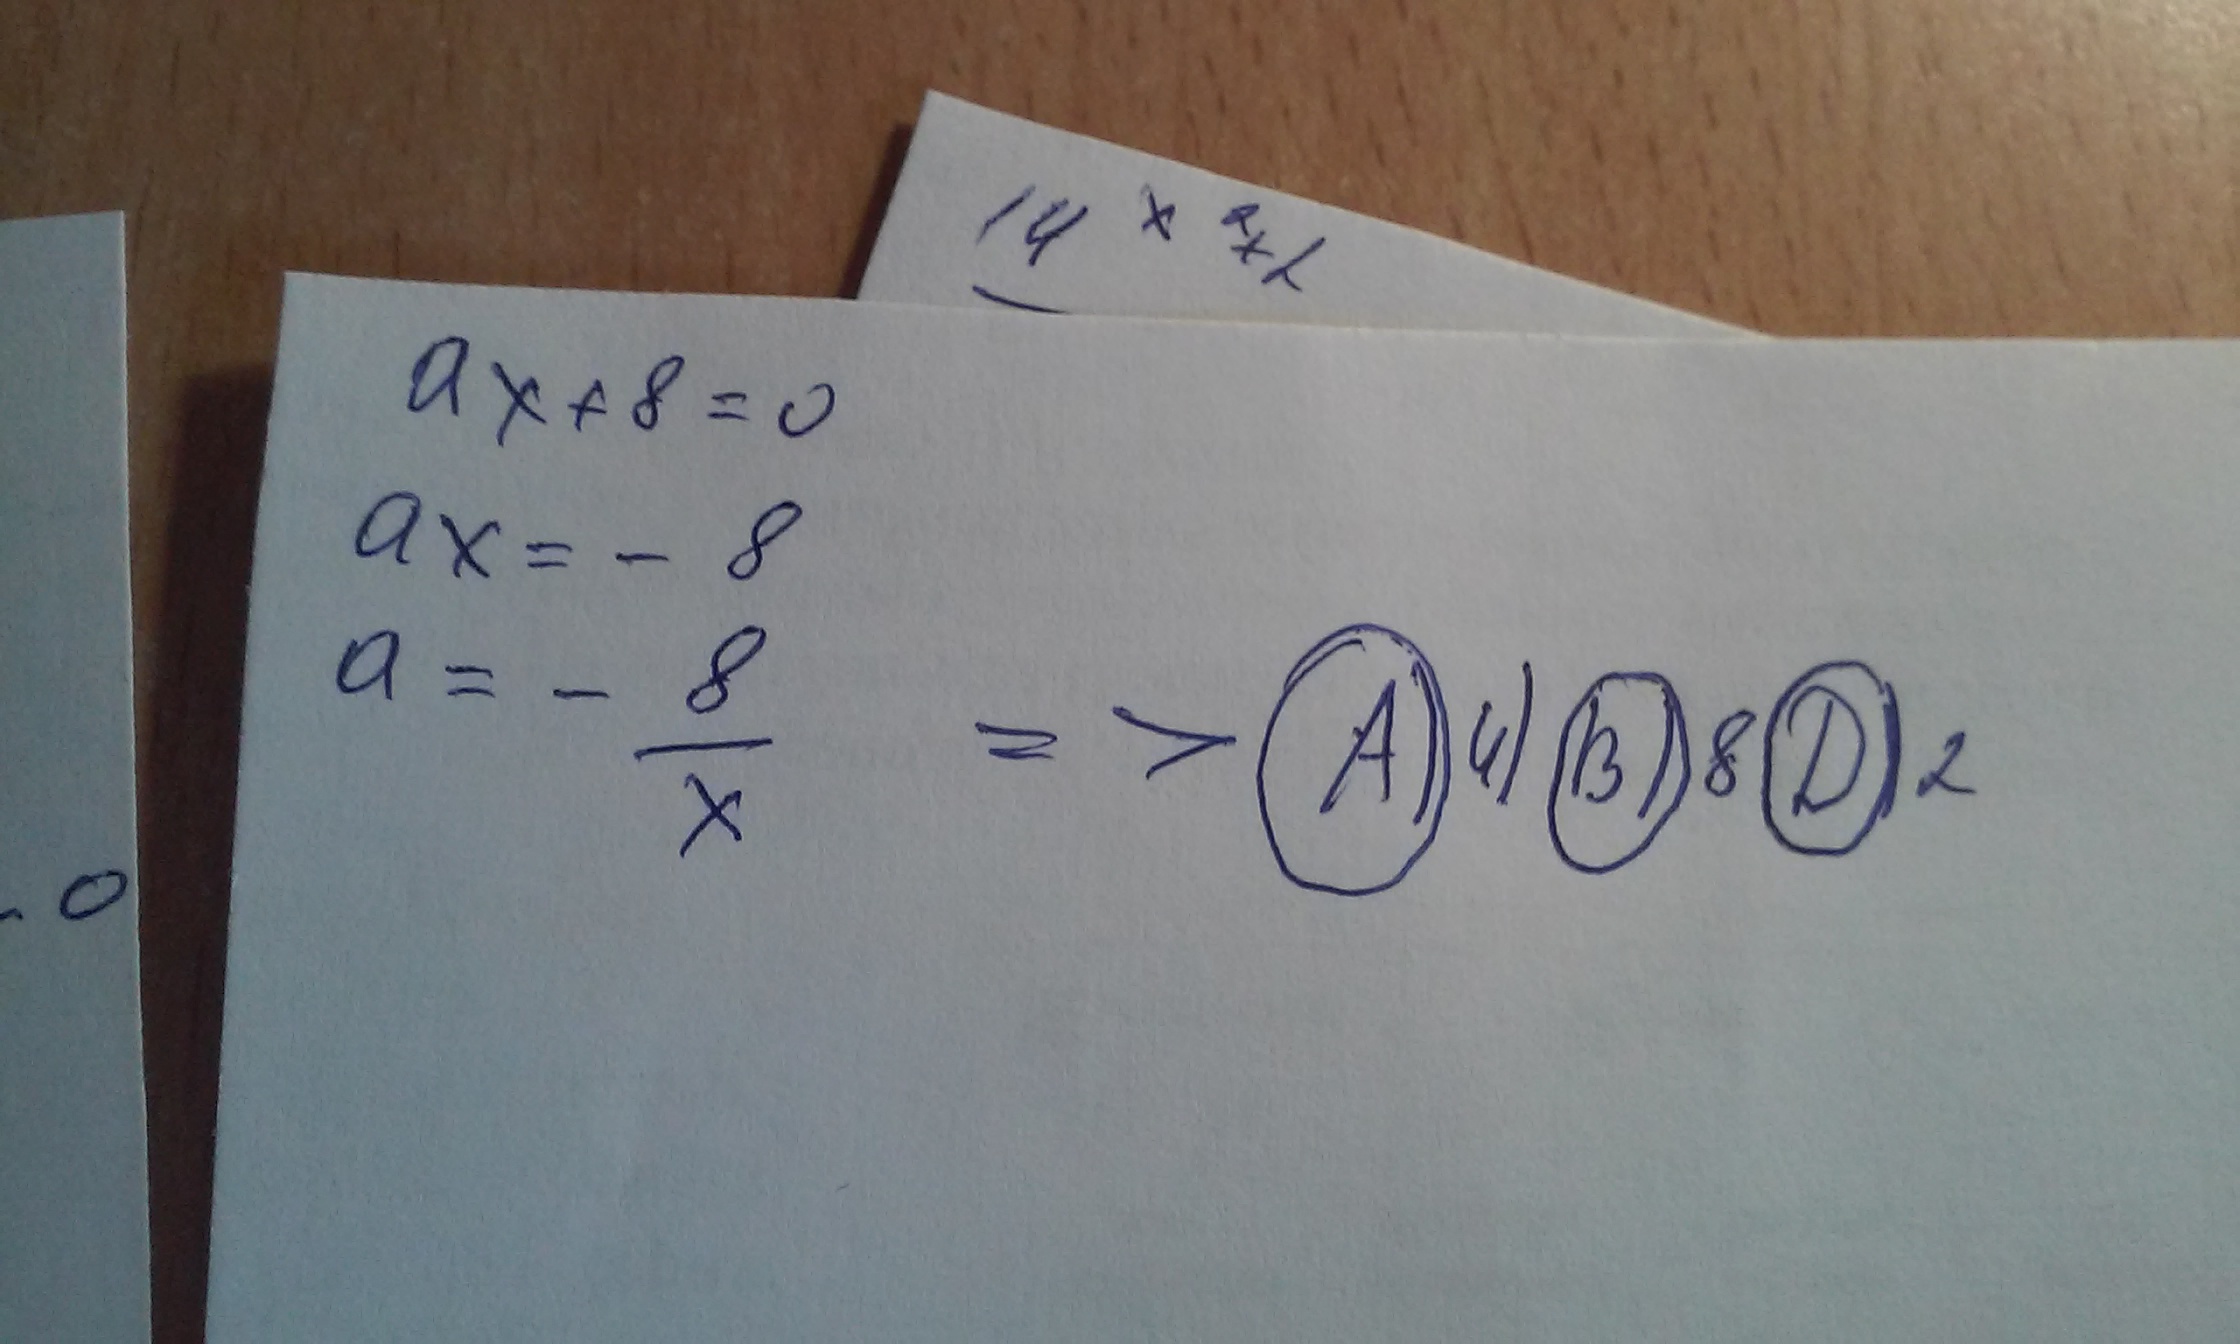 14 x
ax+8=0
ax=- 8
a = - 8/x => A) 4) B) 8 D) 2
- 0